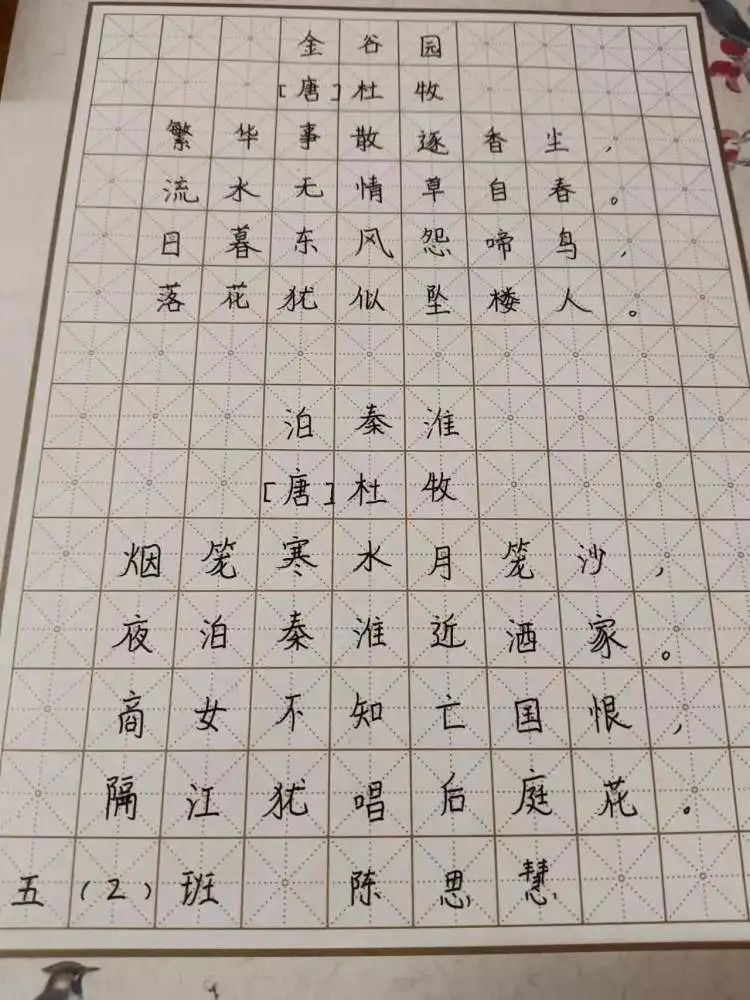 金谷园
[唐]杜牧
繁华事散逐香尘,
流水无情草自春。
日暮东风怨啼鸟,
落花犹似坠楼人。
泊秦淮
[唐]杜牧
烟笼寒水月笼沙,
夜泊秦淮近酒家。
商女不知亡国恨,
隔江犹唱后庭花。
五(2)班 陈思慧